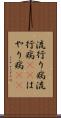 流行り病流
行病は
やり病